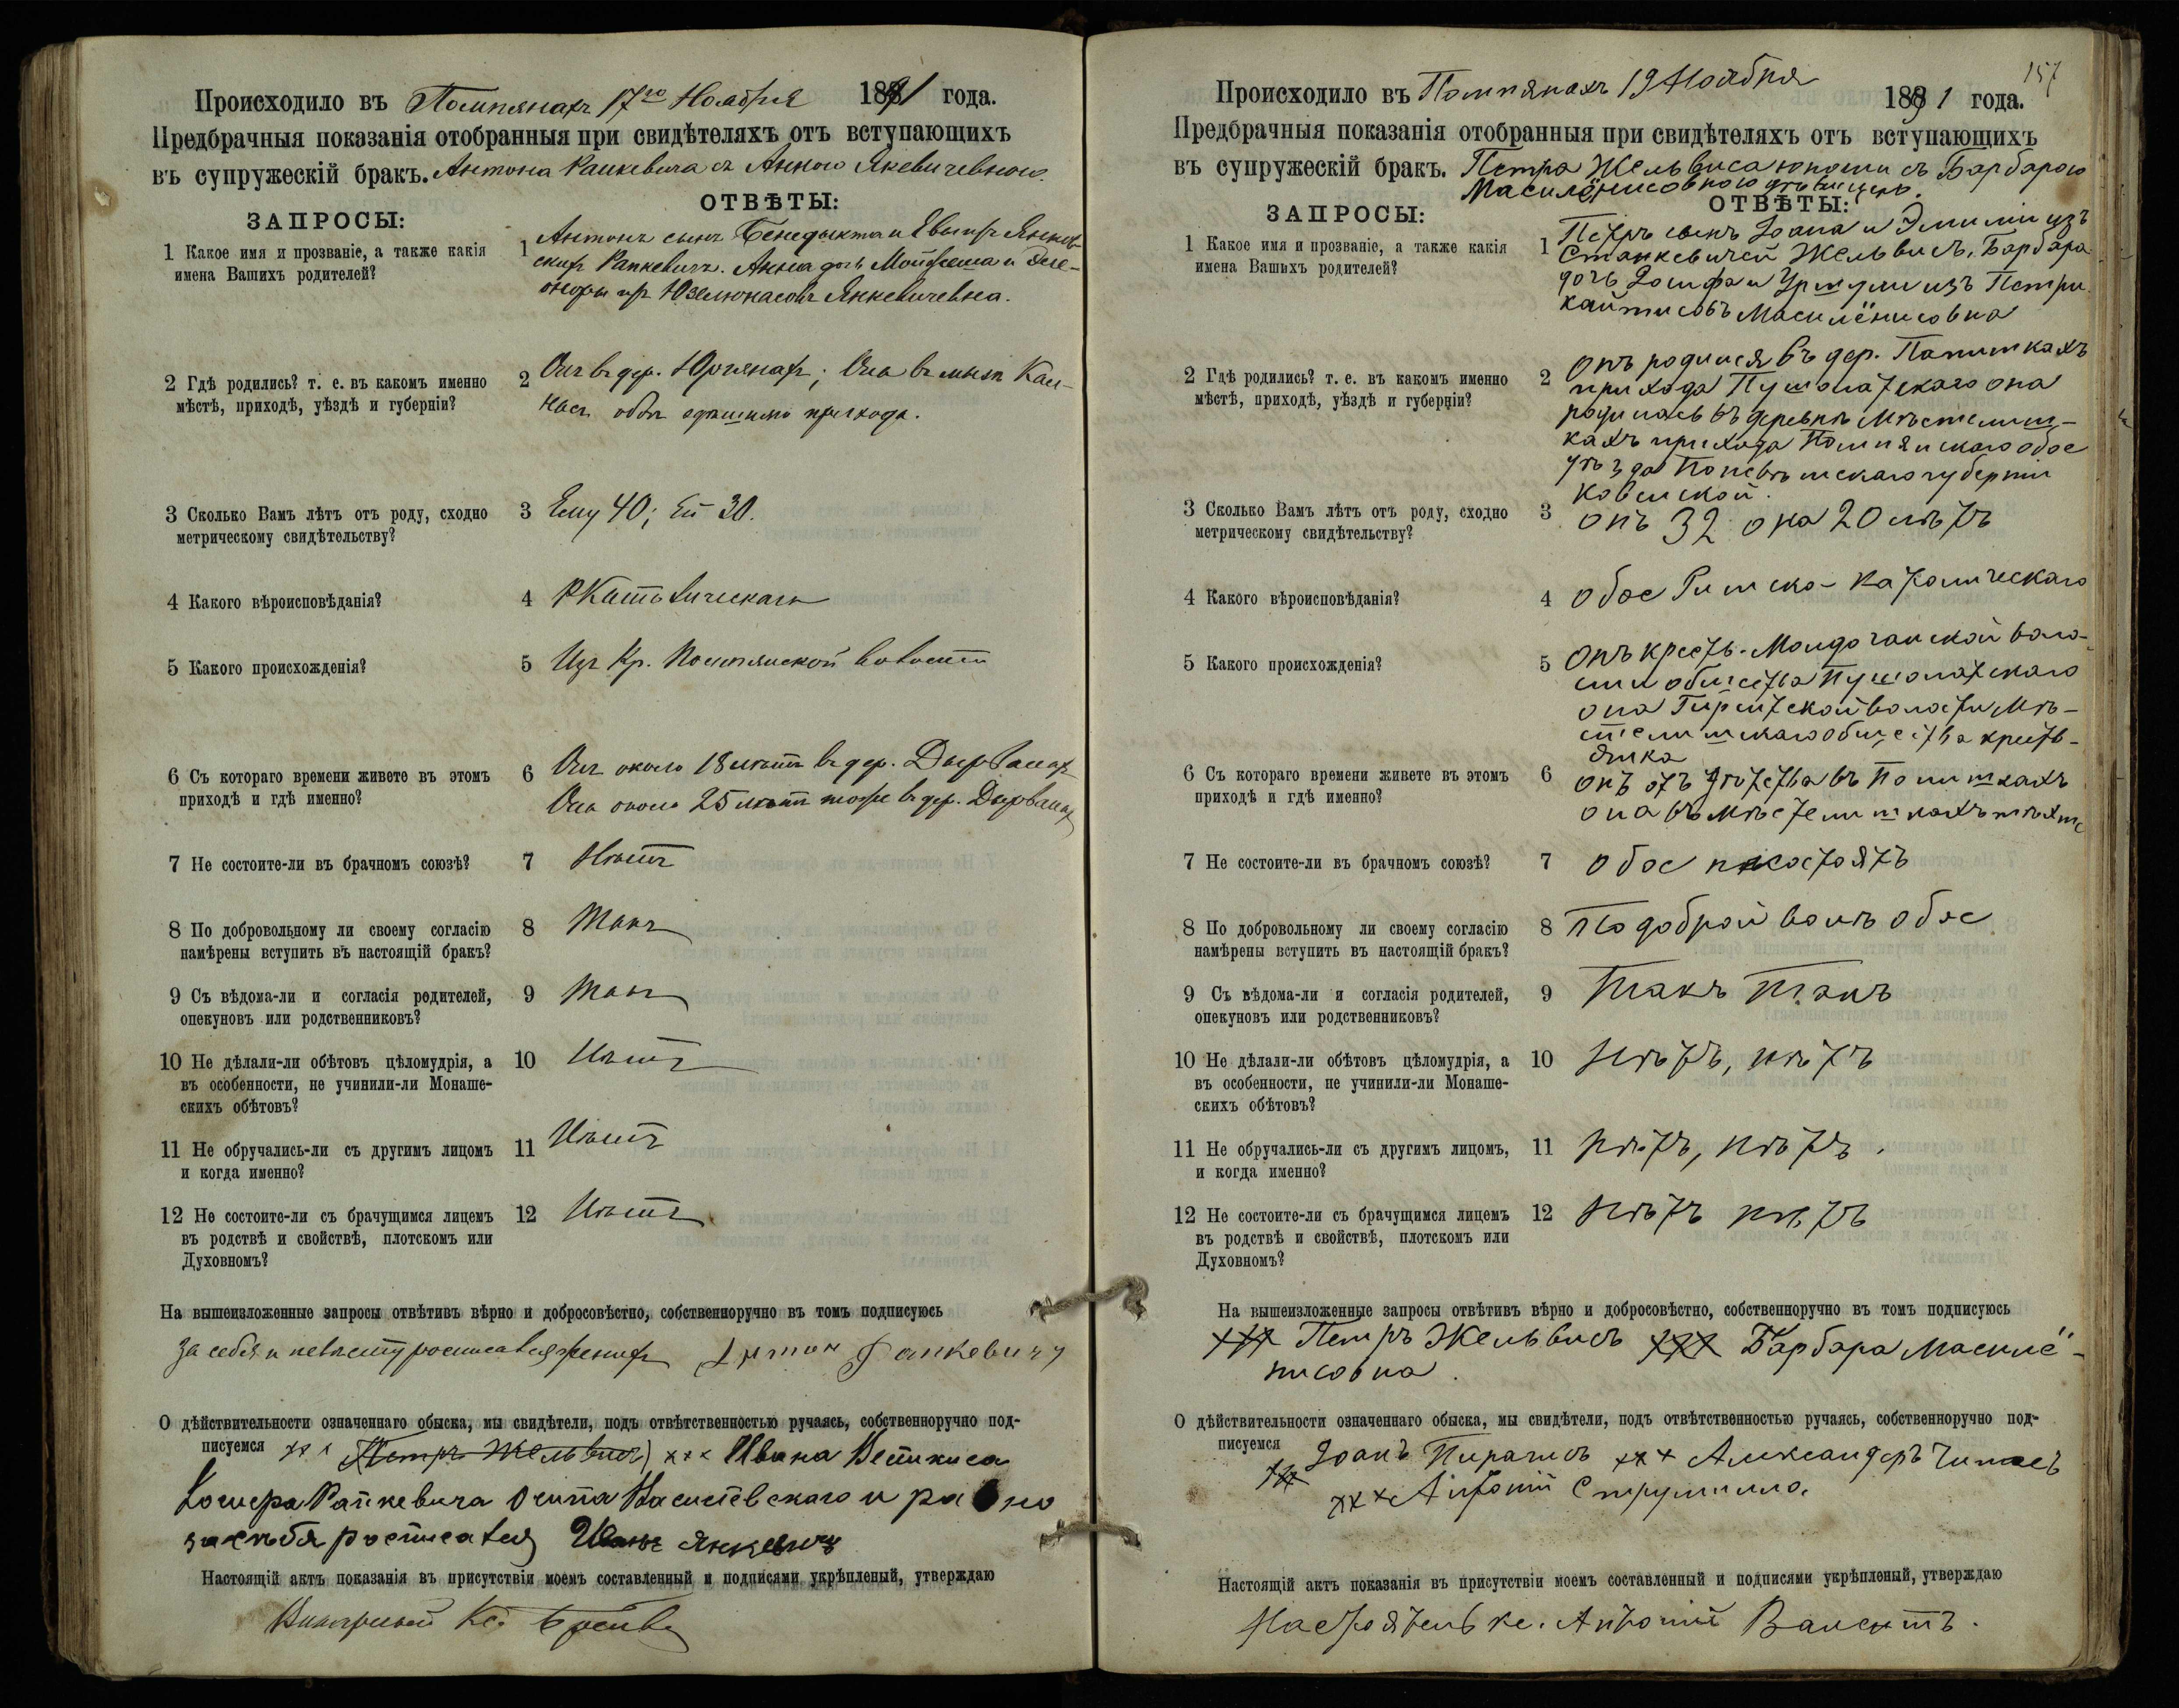 Происходило въ Помпянахъ 17го Ноября 1891 года.
Предбрачныя показанія отобранныя при свидѣтеляхъ отъ вступающихъ
въ супружескій бракъ. Антона Рапкевича съ Анною Янкевичевною.
ЗАПРОСЫ:
ОТВѢТЫ:
1 Какое имя и прозваніе, а также какія
имена Вашихъ родителей?
1 Антонъ сынъ Бенедыкта и Евы изъ
Рапкевичъ. Анна дочь и Еле-
оноры изъ Юзелюнасовъ Янкевичевна.
2 Гдѣ родились? т. е. въ какомъ именно
мѣстѣ, приходѣ, уѣздѣ и губерніи?
2 Онъ въ дер. Юргянахъ; Она въ
обѣ прихода.
3 Сколько Вамъ лѣтъ отъ роду, сходно
метрическому свидѣтельству?
3 Ему 40; Ей 30.
4 Какого вѣроисповѣданія?
4 РКатолическаго
5 Какого происхожденія?
5 Изъ Кр. Помпянской волости
6 Съ котораго времени живете въ этомъ
приходѣ и гдѣ именно?
6 Онъ около 18 лѣтъ въ дер. Дырванахъ
Она около 25 лѣтъ тоже въ дер. Дырванахъ
7 Не состоите-ли въ брачномъ союзѣ?
7 Нѣтъ
8 По добровольному ли своему согласію
намѣрены вступить въ настоящій бракъ?
8 Такъ
9 Съ вѣдома-ли и согласія родителей,
опекуновъ или родственниковъ?
9 Такъ
10 Не дѣлали-ли обѣтовъ цѣломудрія, а
въ особенности, не учинили-ли Монаше-
скихъ обѣтовъ?
10 Нѣтъ
11 Не обручались-ли съ другимъ лицомъ
и когда именно?
11 Нѣтъ
12 Не состоите-ли съ брачущимся лицемъ
въ родствѣ и свойствѣ, плотскомъ или
Духовномъ?
12 Нѣтъ
На вышеизложенные запросы отвѣтивъ вѣрно и добросовѣстно, собственноручно въ томъ подписуюсь
За себя и невѣсту росписался женихъ Антон Рапкевичу
О дѣйствительности означеннаго обыска, мы свидѣтели, подъ отвѣтственностью ручаясь, собственноручно под-
писуемся ххх (Петръ Жельвисъ) ххх Ивана
Рапкевича Осипа и равно
за себя росписался Янкевичъ
Настоящій актъ показанія въ присутствіи моемъ составленный и подписями укрѣпленый, утверждаю
Викарный Кс.
157
Происходило въ Помпянахъ 19 Ноября 1891 года.
Предбрачныя показанія отобранныя при свидѣтеляхъ отъ вступающихъ
въ супружескій бракъ. Петра Жельвиса юноши съ Барбарою
Масилёнисовною дѣвицею.
ЗАПРОСЫ:
ОТВѢТЫ:
1 Какое имя и прозваніе, а также какія
имена Вашихъ родителей?
1 Петръ сынъ Іоана и Эмиліи изъ
Станкевичей Жельвисъ. Барбара
дочь Іосифа и Уршули изъ Петри
кайтисовъ Масилёнисовна
2 Гдѣ родились? т. е. въ какомъ именно
мѣстѣ, приходѣ, уѣздѣ и губерніи?
2 Онъ родился въ дер. Папишкахъ
прихода Пушолатскаго она
родилась въ деревнѣ Мѣстелиш-
кахъ прихода Помпянскаго обое
уѣзда Поневѣжскаго губерніи
Ковенской.
3 Сколько Вамъ лѣтъ отъ роду, сходно
метрическому свидѣтельству?
3 онъ 32 она 20 лѣтъ
4 Какого вѣроисповѣданія?
4 обое Римско-католическаго
5 Какого происхожденія?
5 Онъ крестъ. воло-
сти общества Пушолатскаго
она волости Мѣ-
стелишскаго общества кресть-
янка
6 Съ котораго времени живете въ этомъ
приходѣ и гдѣ именно?
6 онъ отъ дѣтства въ
она въ Мѣстелишкахъ
7 Не состоите-ли въ брачномъ союзѣ?
7 обое несостоятъ
8 По добровольному ли своему согласію
намѣрены вступить въ настоящій бракъ?
8 По доброй волѣ обое
9 Съ вѣдома-ли и согласія родителей,
опекуновъ или родственниковъ?
9 Такъ Такъ
10 Не дѣлали-ли обѣтовъ цѣломудрія, а
въ особенности, не учинили-ли Монаше-
скихъ обѣтовъ?
10 Нѣтъ, нѣтъ
11 Не обручались-ли съ другимъ лицомъ,
и когда именно?
11 нѣтъ, нѣтъ.
12 Не состоите-ли съ брачущимся лицемъ
въ родствѣ и свойствѣ, плотскомъ или
Духовномъ?
12 Нѣтъ нѣтъ
На вышеизложенные запросы отвѣтивъ вѣрно и добросовѣстно, собственноручно въ томъ подписуюсь
ххх Петръ Жельвисъ ххх Барбара Масилё-
нисовна.
О дѣйствительности означеннаго обыска, мы свидѣтели, подъ отвѣтственностью ручаясь, собственноручно под-
писуемся
ххх Іоанъ Пирагисъ ххх Александеръ
ххх Антоній Струмилло.
Настоящій актъ показанія въ присутствіи моемъ составленный и подписями укрѣпленый, утверждаю
Настоятель кс. Антоній Валентъ.